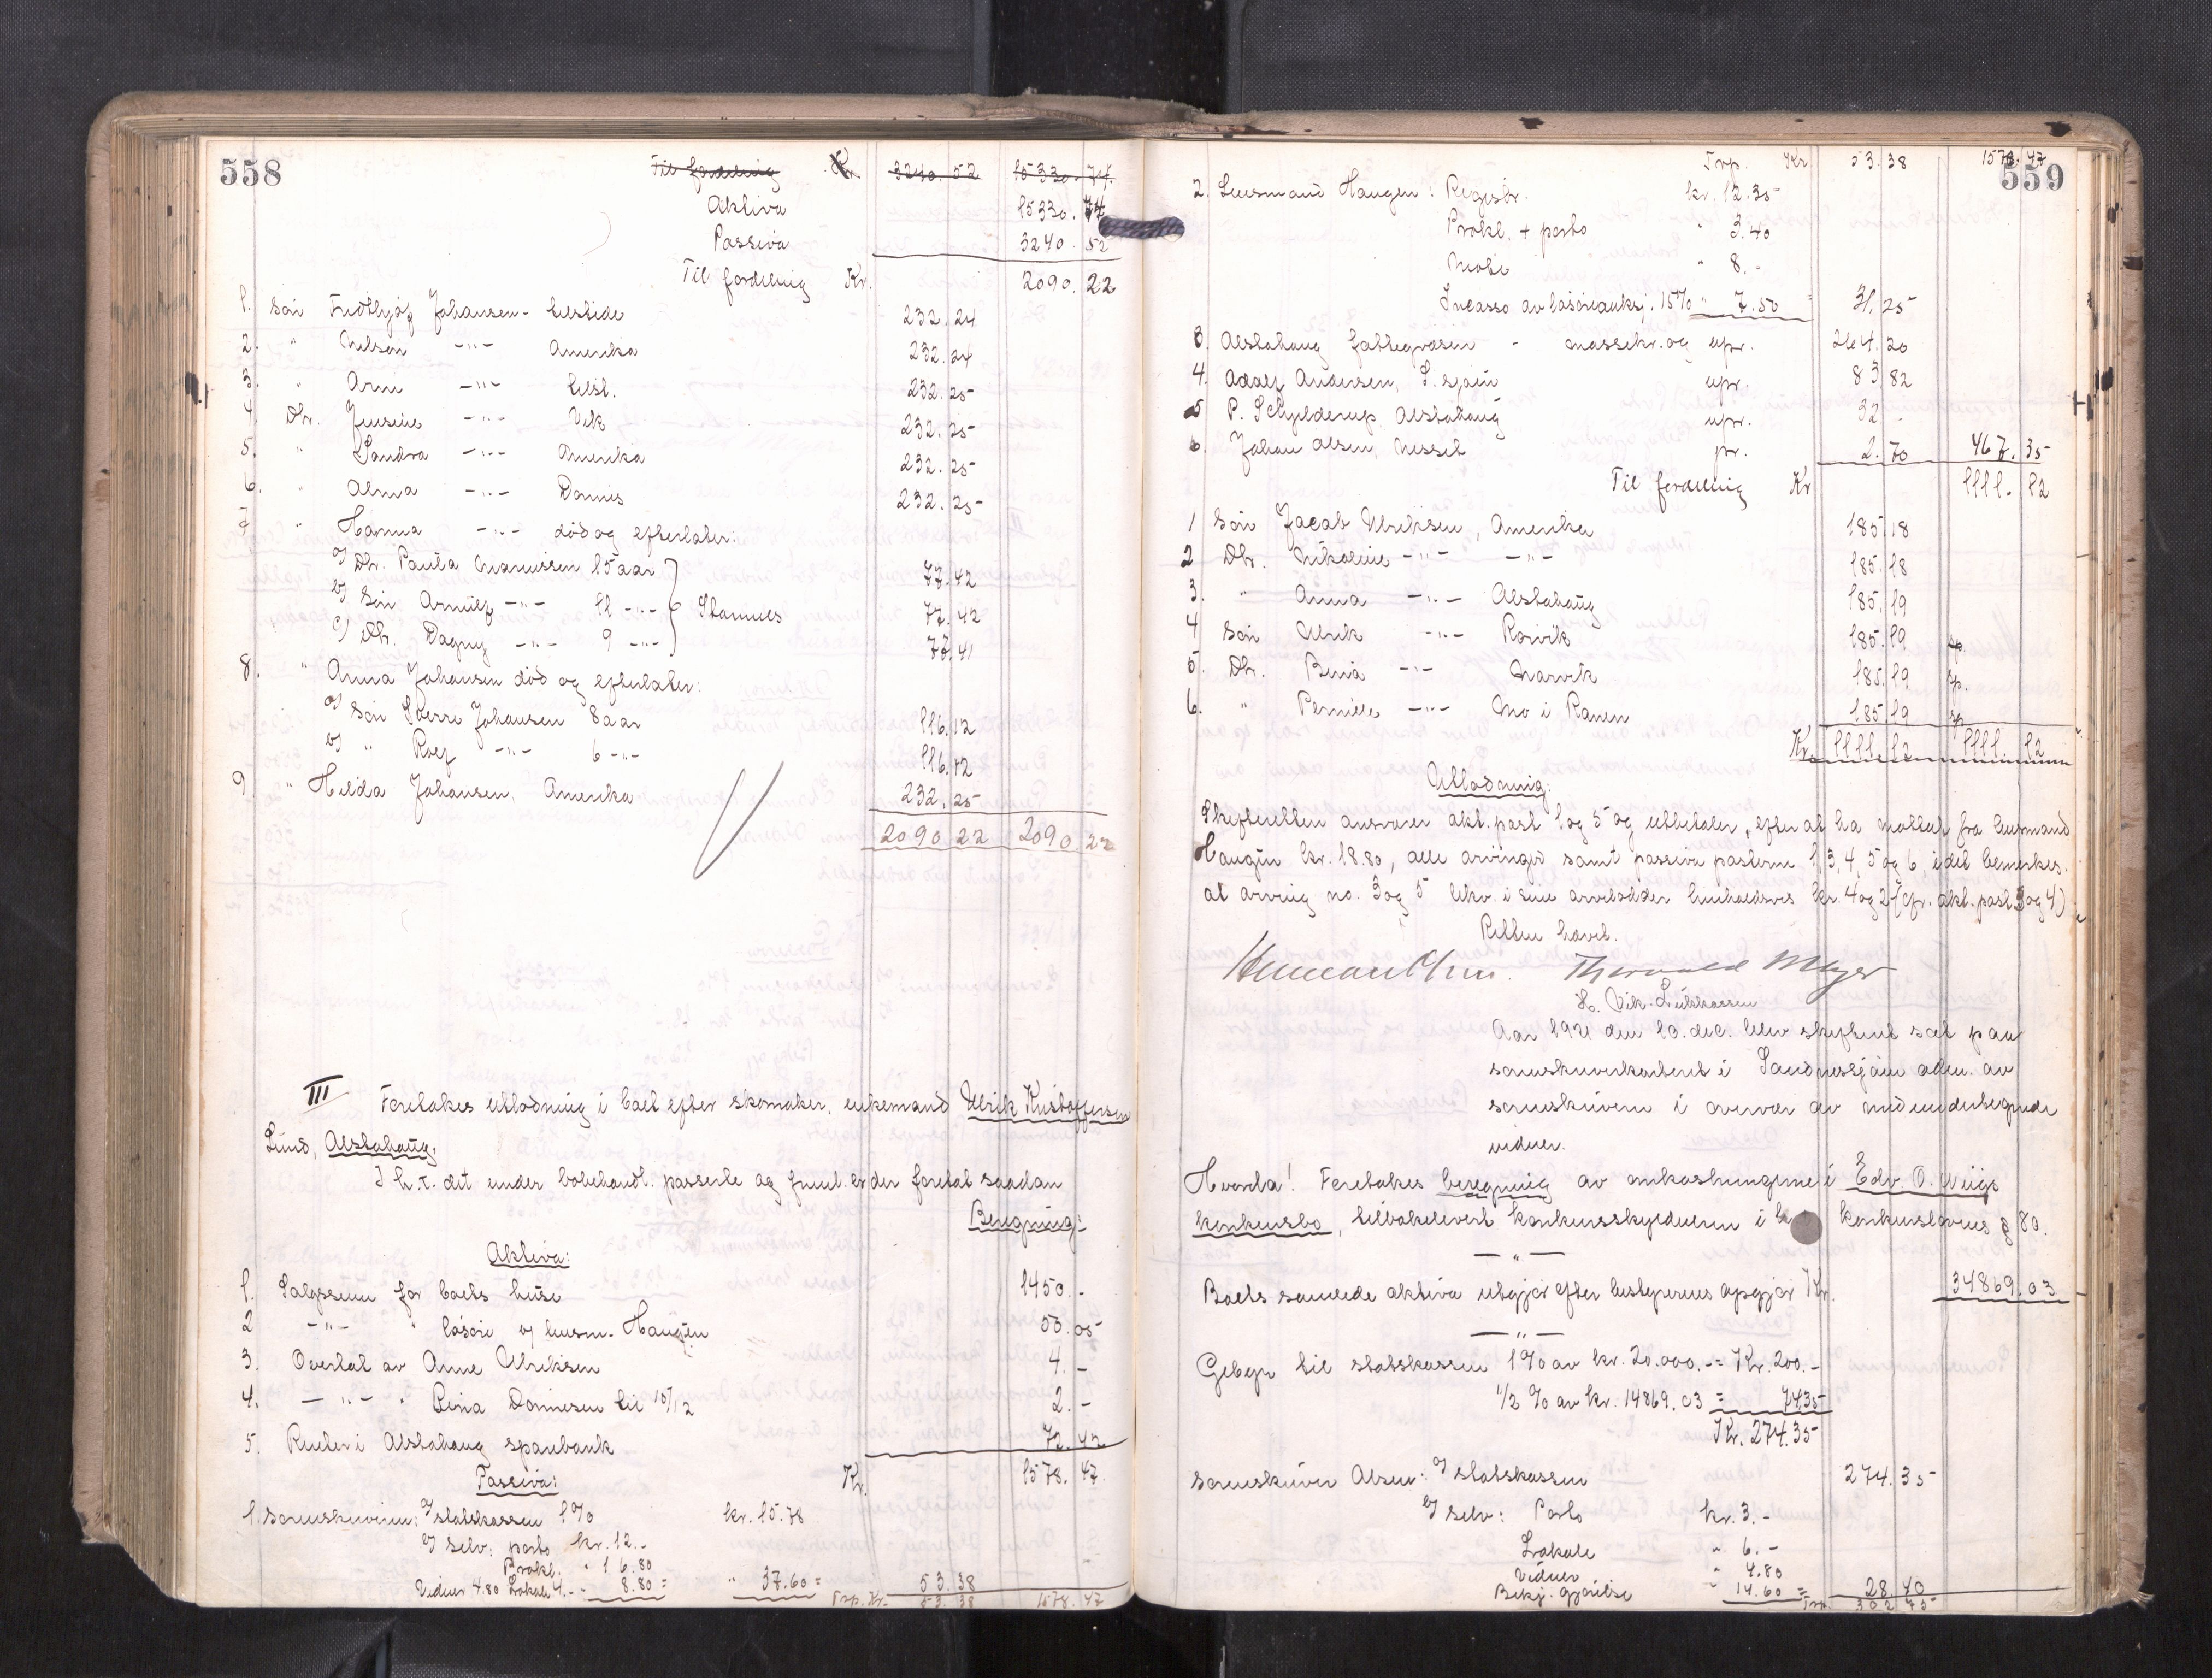 558
Til fordeling Kr. 3240.52 15330.74.
Aktiva 15330.74
Passiva 3240.52
Til fordeling Kr. 2090.22
1. Søn Fridthjof Johansen - 232.24
2. " Nelson -"- Amerika 232.24
3. " Arni -"- 232.25
4. Dtr. Jensine -"- Vik 232.25
5. " Sandra -"- Amerika 232.25
6. " Alma -"- Dønnes 232.25
7. " Hanna -"- død og efterlater:
a) Dtr. Paula Mariussen 15 aar 77.42
b) Søn Arnulf -"- 11 -"- Stamnes 77.42
c) Dtr. Dagny -"- 9 -"- 77.41
8. " Anna Johansen død og efterlater:
a) Søn Sverre Johansen 8 aar 116.12
b) " Rolf -"- 6 -"- 116.12
9. " Hilda Johansen, Amerika 232.25
2090.22 2090.22
III Foretakes utlodning i boet efter skomaker, enkemand Ulrik Kristoffersen
Lund, Alstahaug.
I h.t. det under bobehandl. passerte og freml. er der foretat saadan
Beregning:
Aktiva:
1. Salgssum for boets huse 1450.-
2 -"- " løsøre v/ lensm. Haugen 50.05
3. Overtat av Anne Ulriksen 4.-
4. -"- " Bina Dønnesen til 10/12 2.-
5. Renter i Alstahaug sparebank 72.42
Kr. 1578.47
Passiva:
1. Sorenskriveren: a/ statskassen 1% kr. 15.78
b/ Selv: porto kr. 12.-
Prokl. " 16.80
Vidner 4.80 Lokale 4.- - 8.80 = " 37.60 = 53.38
Trp. Kr. 53.38 1578.47
559
Trp. Kr. 53.38 1578.47
2. Lensmand Haugen: Registr. kr. 12.35
Prokl. + porto " 3.40
" 8.-
Incasso av løsøreauksj. 15% " 7.50 = 31.25
3. Alstahaug fattegvæsen - massekr. og upr. 264.20
4. Adolf Andersen, S.sjøen upr. 83.82
5 P. Schjelderup, Alstahaug upr. 32.-
6. Johan Olsen, Nesset pr. 2.70 467.35
Til fordeling Kr 1111.12
1 Søn Jacob Ulriksen, Amerika 185.18
2 Dtr. Nikoline -"- -"- 185.18
3. " Anna -"- Alstahaug 185.19
4 Søn Ulrik -"- Rørvik 185.19
5. Dtr. Bina -"- Narvik 185.19
6. " Pernille -"- Mo i Ranen 185.19
Kr. 1111.12 1111.12
Utlodning:
Skifteretten ansvarer akt. post 1 og 5 og utbetaler, efter at ha mottat fra lensmand
Haugen kr. 18.80, alle arvinger samt passiva posterne 1, 3, 4, 5 og 6, idet bemerkes
at arving no. 3 og 5 likv. i sine arvelodder henholdsvis kr. 4 og 2 (cfr. akt. post 3 og 4)
Retten hævet.
Thorvald Meyer
Aar 1921 den 10. dec. blev skifteret sat paa
sorenskriverkontoret i Sandnessjøen adm. av
sorenskriveren i overvær av medundertegnede
vidner.
Hvorda! Foretakes beregning av omkostningerne i Edv. O.
konkursbo, tilbakelevert konkursskyldneren i konkurslovens § 80.
-"-
Boets samlede aktiva utgjør efter bestyrerens opgjør Kr. 34869.03
-"-
Gebyr til statskassen 1% av kr. 20.000.- = Kr. 200.-
1/2 % av kr. 14869.03 = 74.35
Kr. 274.35
Sorenskriver Olsen: a/ statskassen 274.35
b/ Selv: Porto kr. 3.-
Lokale " 6.-
Vidner " 4.80
Bekj. gjørelse " 14.60 = 28.40
Trp. 302.75